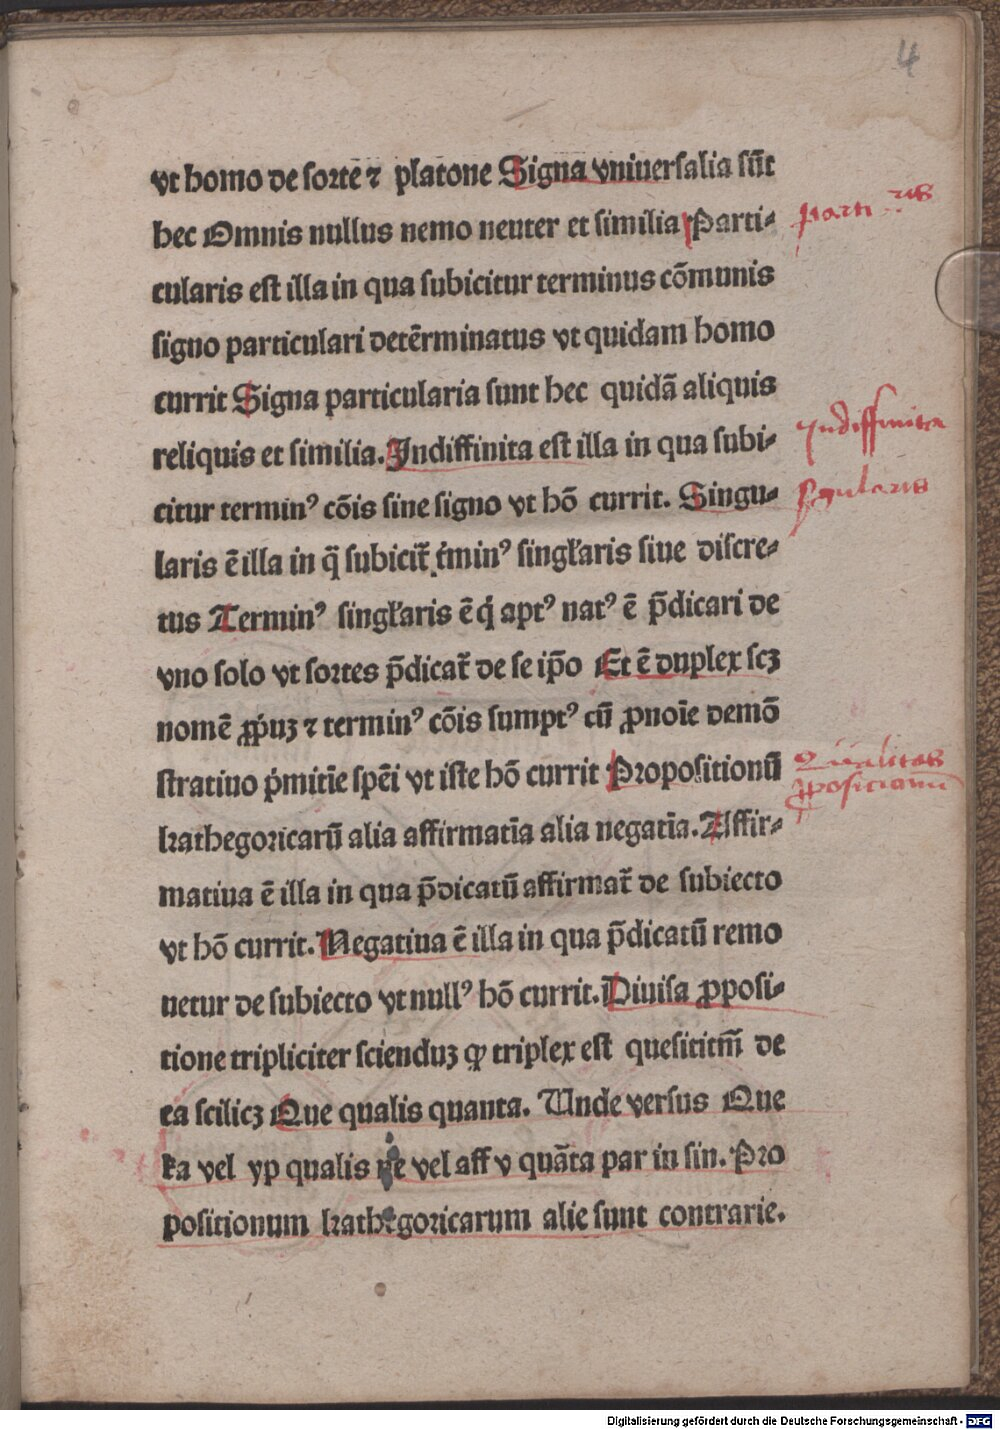 4
vt homo de sorte ⁊ platone Signa vniuersalia sūt
hec Omnis nullus nemo neuter et similia Parti-
cularis est illa in qua subicitur terminus cōmunis
signo particulari detērminatus vt quidam homo
currit Signa particularia sunt hec quidā aliquis
reliquis et similia. Indiffinita est illa in qua subi-
citur terminꝰ cōis sine signo vt hō currit. Singu-
laris ē illa in q̄ subicit̄ t̄minꝰ singl'aris siue discre-
tus Terminꝰ singl'aris ē q̇ aptꝰ natꝰ ē p̄dicari de
vno solo vt sortes p̄dicat̄ de se ip̄o Et ē duplex scꝫ
nomē ꝓpͥuꝫ ⁊ terminꝰ cōis sumptꝰ cū ꝓnoīe demō
stratiuo pͥmitīe spēi vt iste hō currit Propositionū
kathegoricarū alia affirmatīa alia negatīa. Affir-
matiua ē illa in qua p̄dicatū affirmat̄ de subiecto
vt hō currit. Negatiua ē illa in qua p̄dicatū remo
uetur de subiecto vt nullꝰ hō currit. Diuisa ꝓposi-
tione tripliciter scienduꝫ ꝙ triplex est quesititm̄ de
ea scilicꝫ Que qualis quanta. Unde versus Que
ka vel yp qualis ne vel aff v quāta par in sin. Pro
positionum kathegoricarum alie sunt contrarie.
Indiffinita
Singularis
Qualitas
ꝓposicionū
Digitalisierung gefördert durch die Deutsche Forschungsgemeinschaft - DFG